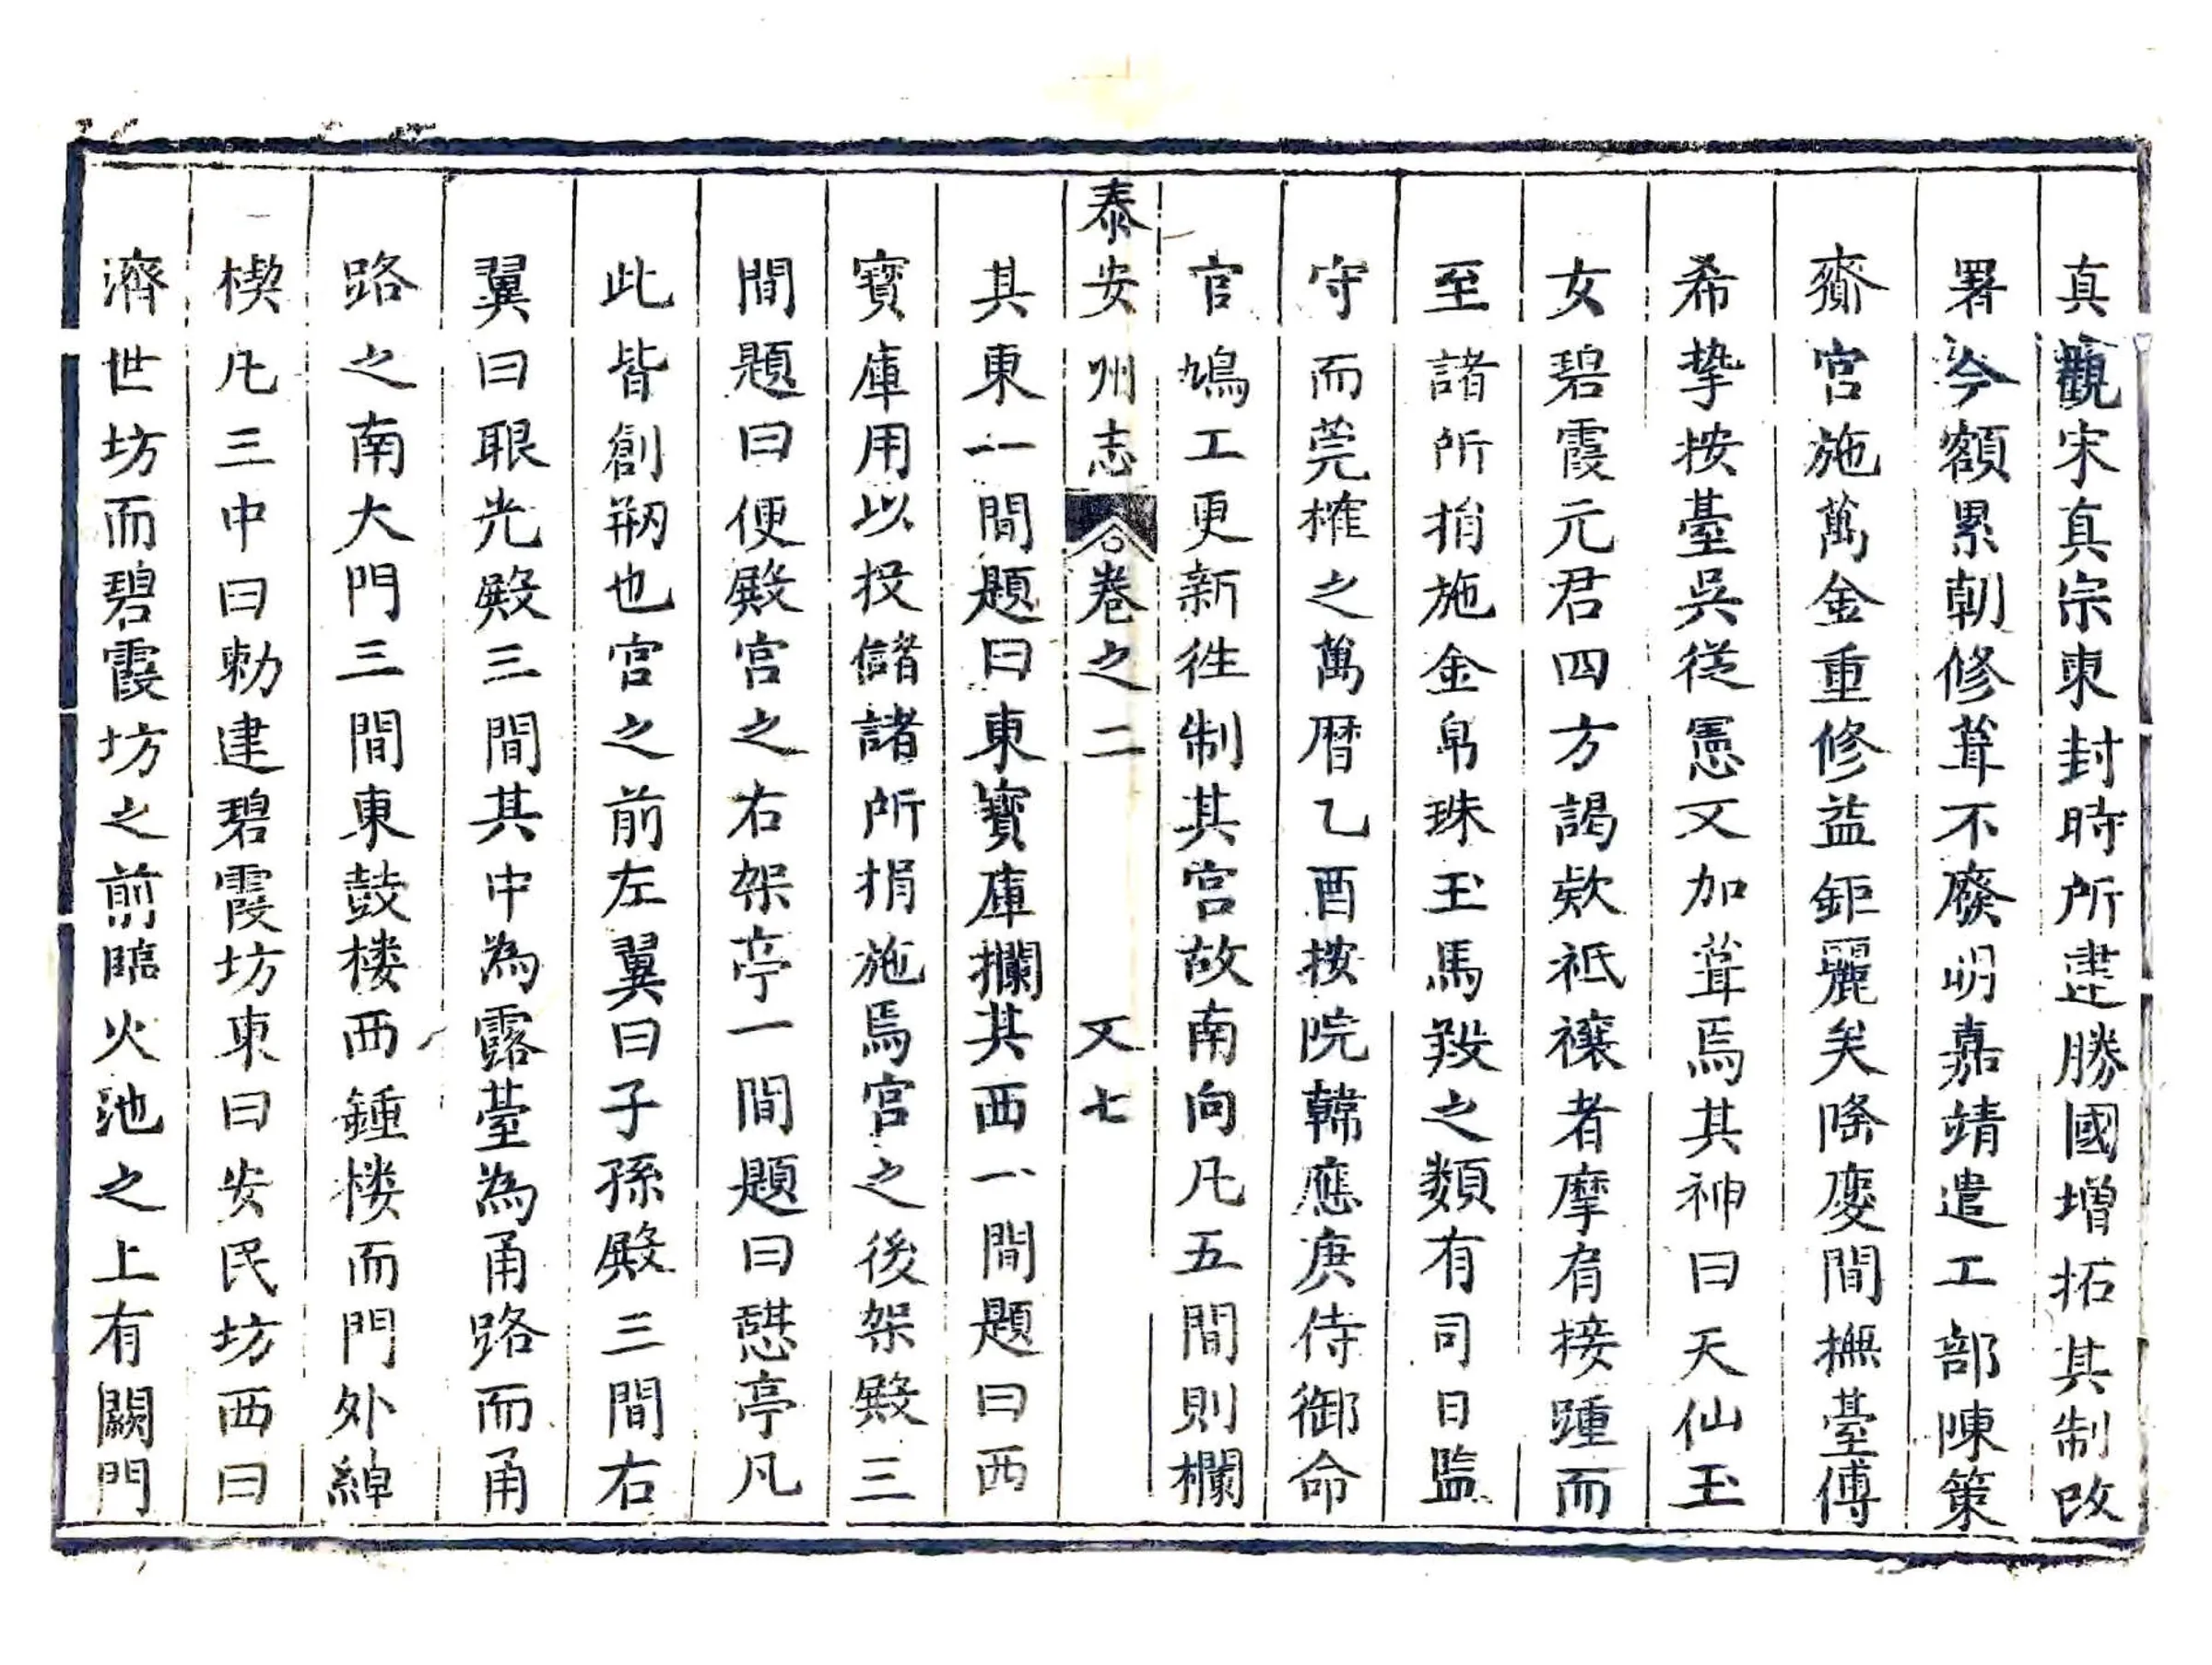 真觀宋真宗東封時所建勝國增拓其制改
署今額累朝修葺不廢明嘉靖遣工部陳策
齎宮施萬金重修益鉅麗矣隆慶間撫臺傅
希摯按臺吳從憲又加葺焉其神曰天仙玉
女碧霞元君四方謁欵祗禳者摩肩接踵而
至諸所捐施金帛珠玉馬羖之類有司日監
守而莞榷之萬曆乙酉按院韓應庚侍御命
官鳩工更新徃制其宮故南向凡五間則欄
泰安州志 卷之二 又七
其東一間題曰東寶庫欄其西一間題曰西
寶庫用以投儲諸所捐施焉宮之後架殿三
間題曰便殿宮之右架亭一間題曰憇亭凡
此皆創刱也宮之前左翼曰子孫殿三間右
翼曰眼光殿三間其中為露臺為甬路而甬
路之南大門三間東鼓楼西鍾楼而門外綽
楔凡三中曰勅建碧霞坊東曰安民坊西曰
濟世坊而碧霞坊之前臨火池之上有闕門